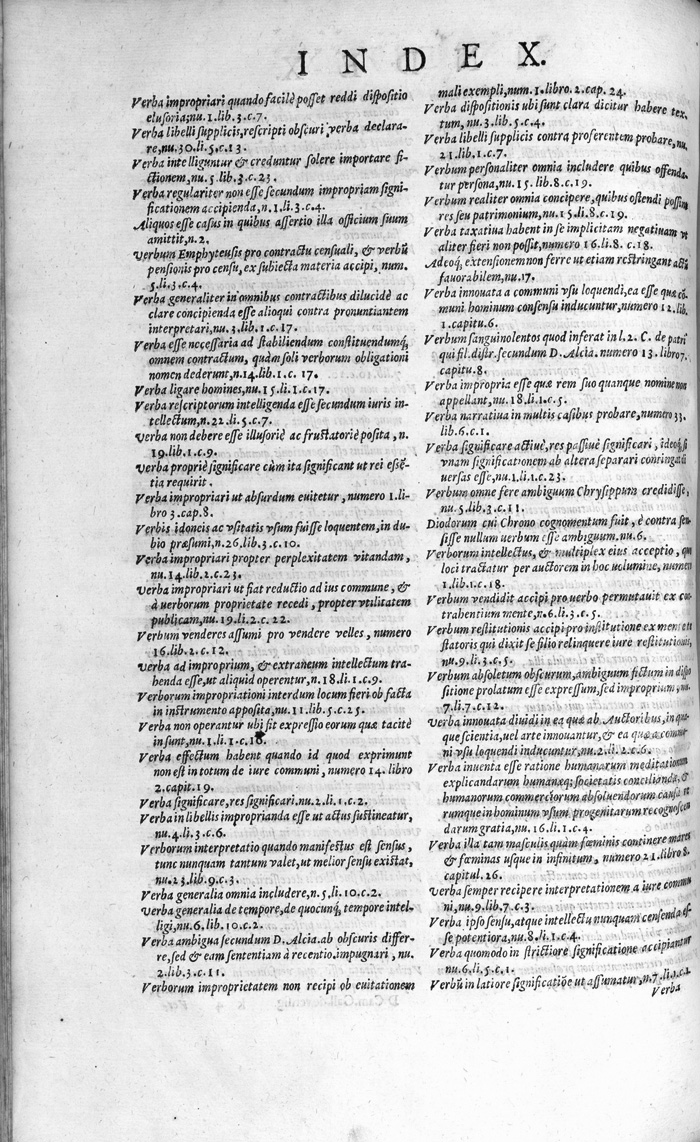 INDEX.
Verba impropriari quando facilè posset reddi dispositio
elusoria, nu. 1. lib. 3. c. 7.
Verba libelli supplicis, rescripti obscuri verba declara-
re, nu. 30. li. 5. c. 13.
Verba intelliguntur & creduntur solere importare fi-
ctionem, nu. 5. lib. 3. c. 23.
Verba regulariter non esse secundum impropriam signi-
ficationem accipienda, n. 1. li. 3. c. 4.
Aliquos esse casus in quibus assertio illa officium suum
amittit, n. 2.
Verbum Emphyteusis pro contractu censuali, & verbũ
pensionis pro censu, ex subiecta materia accipi, num.
5. li. 3. c. 4.
Verba generaliter in omnibus contractibus dilucidè ac
clare concipienda esse alioqui contra pronuntiantem
interpretari, nu. 3. lib. 1. c. 17.
Verba esse necessaria ad stabiliendum constituendumq́;
omnem contractum, quàm soli verborum obligationi
nomen dederunt, n. 14. lib. 1. c. 17.
Verba ligare homines, nu. 15. li. 1. c. 17.
Verba rescriptorum intelligenda esse secundum iuris in-
tellectum, n. 22. li. 5. c. 7.
Verba non debere esse illusoriè ac frustatoriè posita, n.
19. lib. 1. c. 9.
Verba propriè significare cùm ita significant ut rei essẽ-
tia requirit.
Verba impropriari ut absurdum euitetur, numero 1. li-
bro 3. cap. 8.
Verbis idoneis ac vsitatis vsum fuisse loquentem, in du-
bio præsumi, n. 26. lib. 3. c. 10.
Verba impropriari propter perplexitatem vitandam,
nu. 14. lib. 2. c. 23.
Verba impropriari ut fiat reductio ad ius commune, &
à uerborum proprietate recedi, propter vtilitatem
publicam, nu. 19. li. 2. c. 22.
Verbum venderes assumi pro vendere velles, numero
16. lib. 2. c. 12.
Verba ad improprium, & extraneum intellectum tra-
henda esse, ut aliquid operentur, n. 18. li. 1. c. 9.
Verborum impropriationi interdum locum fieri ob facta
in instrumento apposita, nu. 11. lib. 5. c. 25.
Verba non operantur ubi fit expressio eorum quæ tacitè
insunt, nu. 1. li. 1. c. 18.
Verba effectum habent quando id quod exprimunt
non est in totum de iure communi, numero 14. libro
2. capit. 19.
Verba significare, res significari. nu. 2. li. 1. c. 2.
Verba in libellis improprianda esse ut actus sustineatur,
nu. 4. li. 3. c. 6.
Verborum interpretatio quando manifestus est sensus,
tunc nunquam tantum valet, ut melior sensu existat,
nu. 23. lib. 9. c. 3.
Verba generalia omnia includere, n. 5. li. 10. c. 2.
Verba generalia de tempore, de quocunq́; tempore intel-
ligi, nu. 6. lib. 10. c. 2.
Verba ambigua secundum D. Alcia. ab obscuris differ-
re, sed & eam sententiam à recentio. impugnari, nu.
2. lib. 3. c. 11.
Verborum improprietatem non recipi ob euitationem
mali exempli, num. 1. libro. 2. cap. 24.
Verba dispositionis ubi sunt clara dicitur habere tex
tum, nu. 3. lib. 5. c. 4.
Verba libelli supplicis contra proferentem probare, nu.
21. lib. 1. c. 7.
Verbum personaliter omnia includere quibus offenda-
tur persona, nu. 15. lib. 8. c. 19.
Verbum realiter omnia concipere, quibus ostendi possim
res seu patrimonium, nu. 15. li. 8. c. 19.
Verba taxatiua habent in se implicitam negatiuam vt
aliter fieri non possit, numero 16. li. 8. c. 18.
Adeoq́; extensionem non ferre ut etiam restringat actũ
fauorabilem, nu. 17.
Verba innouata a communi vsu loquendi, ea esse quæ cõ
muni hominum consensu inducuntur, numero 12. lib.
1. capitu. 6.
Verbum sanguinolentos quod inferat in l. 2. C. de patri
qui fil. distr. secundum D. Alcia. numero 13. libro 7.
capitu. 8.
Verba impropria esse quæ rem suo quanque nomine non
appellant, nu. 18. li. 1. c. 5.
Verba narratiua in multis casibus probare, numero 33.
lib. 6. c. 1.
Verba significare actiuè, res passiuè significari, ideoq́; si
vnam significationem ab altera separari contingat
uersas esse, nu. 1. li. 1. c. 23.
Verbum omne fere ambiguum Chrysippum credidisse,
nu. 5. lib. 3. c. 11.
Diodorum cui Chrono cognomentum fuit, è contra sen-
sisse nullum uerbum esse ambiguum, nu. 6.
Verborum intellectus, & multiplex eius acceptio, quo
loci tractatur per auctorem in hoc uolumine, numero
1. lib. 1. c. 18.
Verbum vendidit accipi pro uerbo permutauit ex con-
trahentium mente, n. 6. li. 3. c. 5.
Verbum restitutionis accipi pro institutione ex mente te
statoris qui dixit se filio relinquere iure restitutionis,
nu. 9. li. 3. c. 5.
Verbum absoletum obscurum, ambiguum fictum in dispo
sitione prolatum esse expressum, sed improprium, nu.
7. li. 7. c. 12.
Verba innouata diuidi in ea quæ ab Auctoribus, in qua-
que scientia, uel arte innouantur, & ea quæ a commu-
ni vsu loquendi inducuntur, nu. 2. li. 2. c. 6.
Verba inuenta esse ratione humanarum meditationum
explicandarum humanæq́; societatis conciliandæ, &
humanorum commerciorum absoluendorum causa et
rumque in hominum vsum progenitarum recognoscen
darum gratia, nu. 16. li. 1. c. 4.
Verba illa tam masculis quàm fæminis continere mares
& fæminas usque in infinitum, numero 21. libro 8.
capitul. 26.
Verba semper recipere interpretationem a iure commu
ni, nu. 9. lib. 7. c. 3.
Verba ipso sensu, atque intellectu nunquam censenda es-
se potentiora, nu. 8. li. 1. c. 4.
Verba quomodo in strictiore significatione accipiantur
nu. 6. li. 5. c. 1.
Verbũ in latiore significatiõe ut assumatur, n. 7. li. 1. c. 1.
Verba